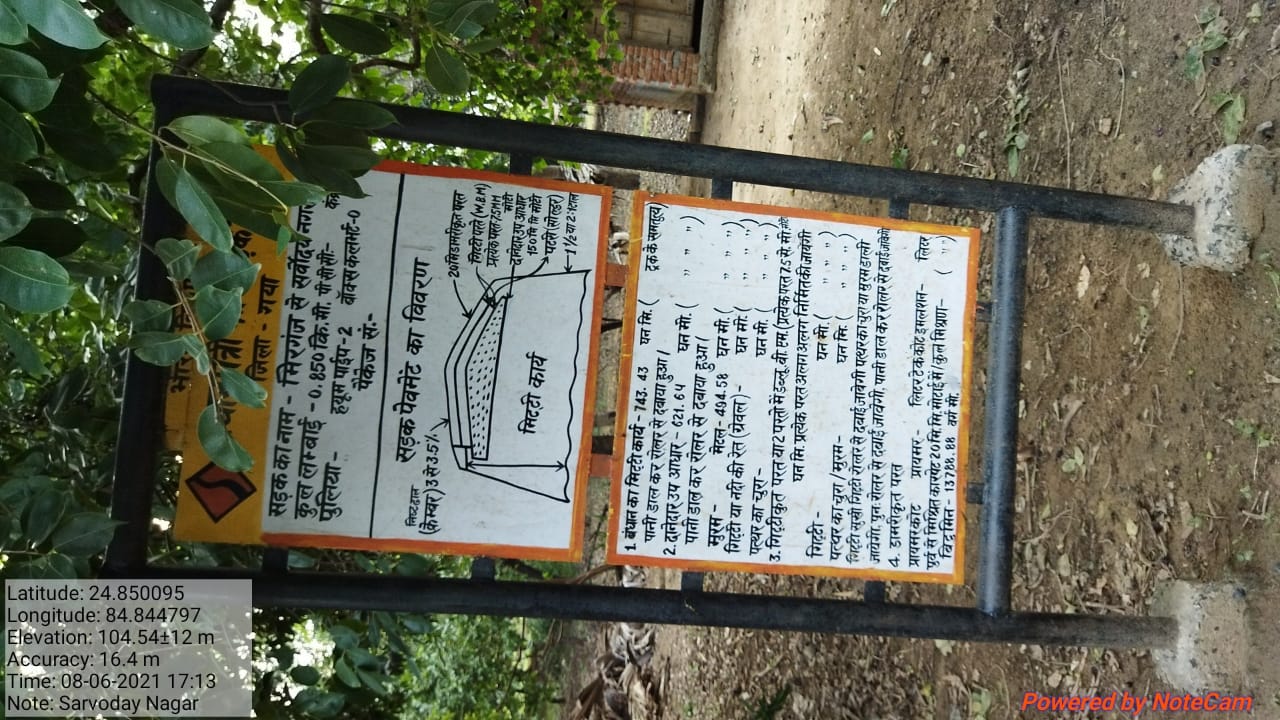 जिला - गया
सड़क का नाम - मिरगंज से सर्वोदय नगर
कुल लम्बाई - 0.850 कि.मी. पी सी सी-
पुलिया - ह्यूम पाईप-2 बॉक्स कल्भर्ट-0
पैकेज सं:-
सड़क पेवमेंट का विवरण
(केम्बर) 3 से 3.5%
गिट्टी परत (W.B.M)
प्रत्येक परत 75MM
दानेदार उप आधार
100 मि मि मोटी
पटरी (सोल्डर)
1½ या 2:1 ढाल
मिटटी कार्य
1. बंधान का मिट्टी कार्य - 743. 43 घन मि. ( ट्रक के समतुल्य)
पानी डाल कर रोलर से दबाया हुआ।
2. दानेदार उप आधार - 621. 64 घन मी. ( " " )
पानी डाल कर रोलर से दबाया हुआ।
मुरम - मेटल - 494.58 घन मी. ( " " )
गिट्टी या नदी की रेत (ग्रेवल) - घन मी. ( " " )
पत्थर का चुरा - घन मी. ( " " )
3. गिट्टीकृत परत या 2 परतों में डब्लू. बी. एम. (प्रत्येक परत 7.5 से. मी.
घन मि. प्रत्येक परत अलग अलग निर्मित की जावेगी
गिट्टी - घन मी. ( " " )
पत्थर का चुरा / मुरम - घन मी. ( " " )
गिट्टी सुखी गिट्टी रोलर से दबाई जावेगी पत्थर का चुरा या मुरम डाली
जावेगी, पुनः रोलर से दबाई जावेगी, पानी डाल कर रोलर से दबाई जावेगी
4. डामरीकृत परत
प्रायमर कोट प्रायमर - लिटर टेक कोट इमलशन - लिटर
चुरे से मिश्रित कारपेट 20 मि. मि. मोटाई में / कुल मिश्रण - ( " " )
- 13788. 88 वर्ग मी.
Latitude: 24.850095
Longitude: 84.844797
Elevation: 104.54±12 m
Accuracy: 16.4 m
Time: 08-06-2021 17:13
Note: Sarvoday Nagar
Powered by NoteCam